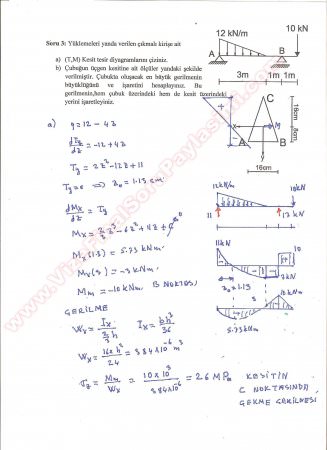 Soru 3: Yüklemeleri yanda verilen çıkmalı kirişe ait
a) (T,M) Kesit tesir diyagramlarını çiziniz.
b) Çubuğun üçgen kesitine ait ölçüler yandaki şekilde
verilmiştir. Çubukta oluşacak en büyük gerilmenin
büyüklüğünü ve işaretini hesaplayınız. Bu
gerilmenin,hem çubuk üzerindeki hem de kesit üzerindeki
yerini işaretleyiniz.
12 kN/m
10 kN
A
B
3m
1m
1m
C
16cm
8cm
A
B
16cm
a)
q = 12 - 4z
dTy/dz = -12 + 4z
Ty = 2z² - 12z + 11
Ty = 0 ⇒ z₀ = 1.13 cm
dMx/dz = Ty
Mx = 2/3 z³ - 6z² + 11z + C
Mx(1.3) = 5.73 kNm.
Mx(4) = -3 kNm.
Mm = -10 kNm. B NOKTASI
12kN/m
10kN
11
17 kN
11kN
10
7kN
z₀ = 1.13
5.73 kNm
GERİLME
Wx = Ix / (2/3 h)
Ix = bh³/36
Wx = 16x h²/24 = 384x10⁻⁶ m³
σz = Mm/Wx = 10x10³/384x10⁻⁶ = 26 MPa
KESİTİN
C NOKTASINDA
ÇEKME GERİLMESİ